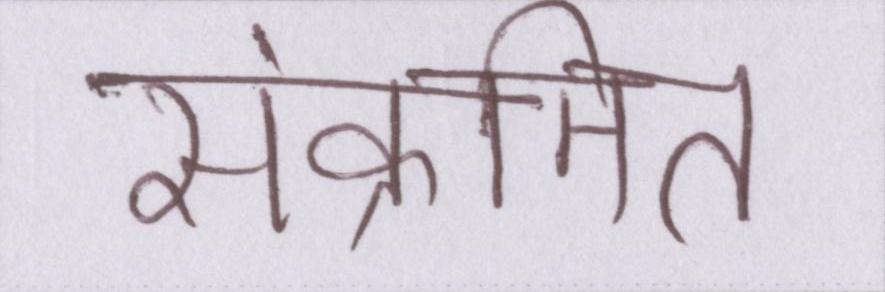 संक्रमित